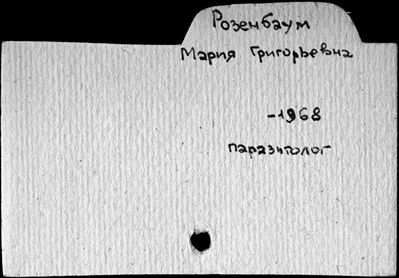 Розенбаум
Мария Григорьевна
-1968
паразитолог